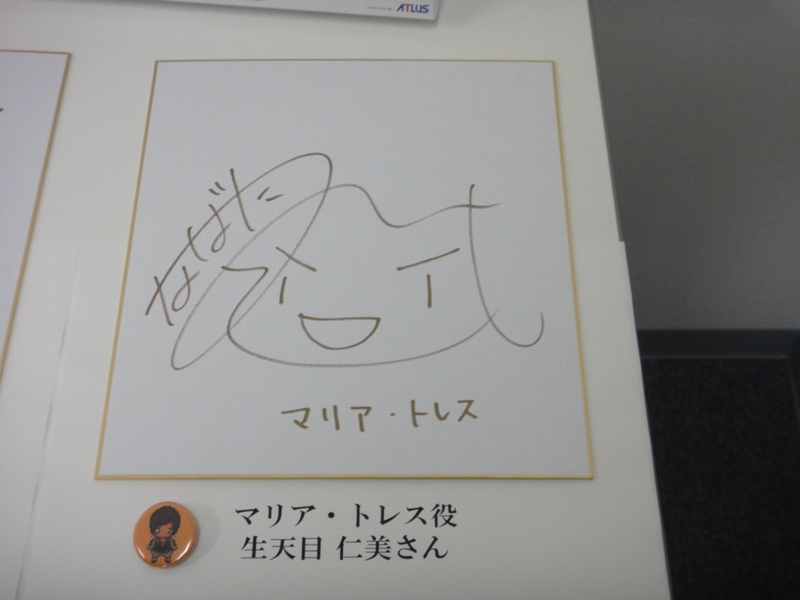 ATLUS
なばた
マリア・トレス
マリア・トレス役
生天目 仁美さん